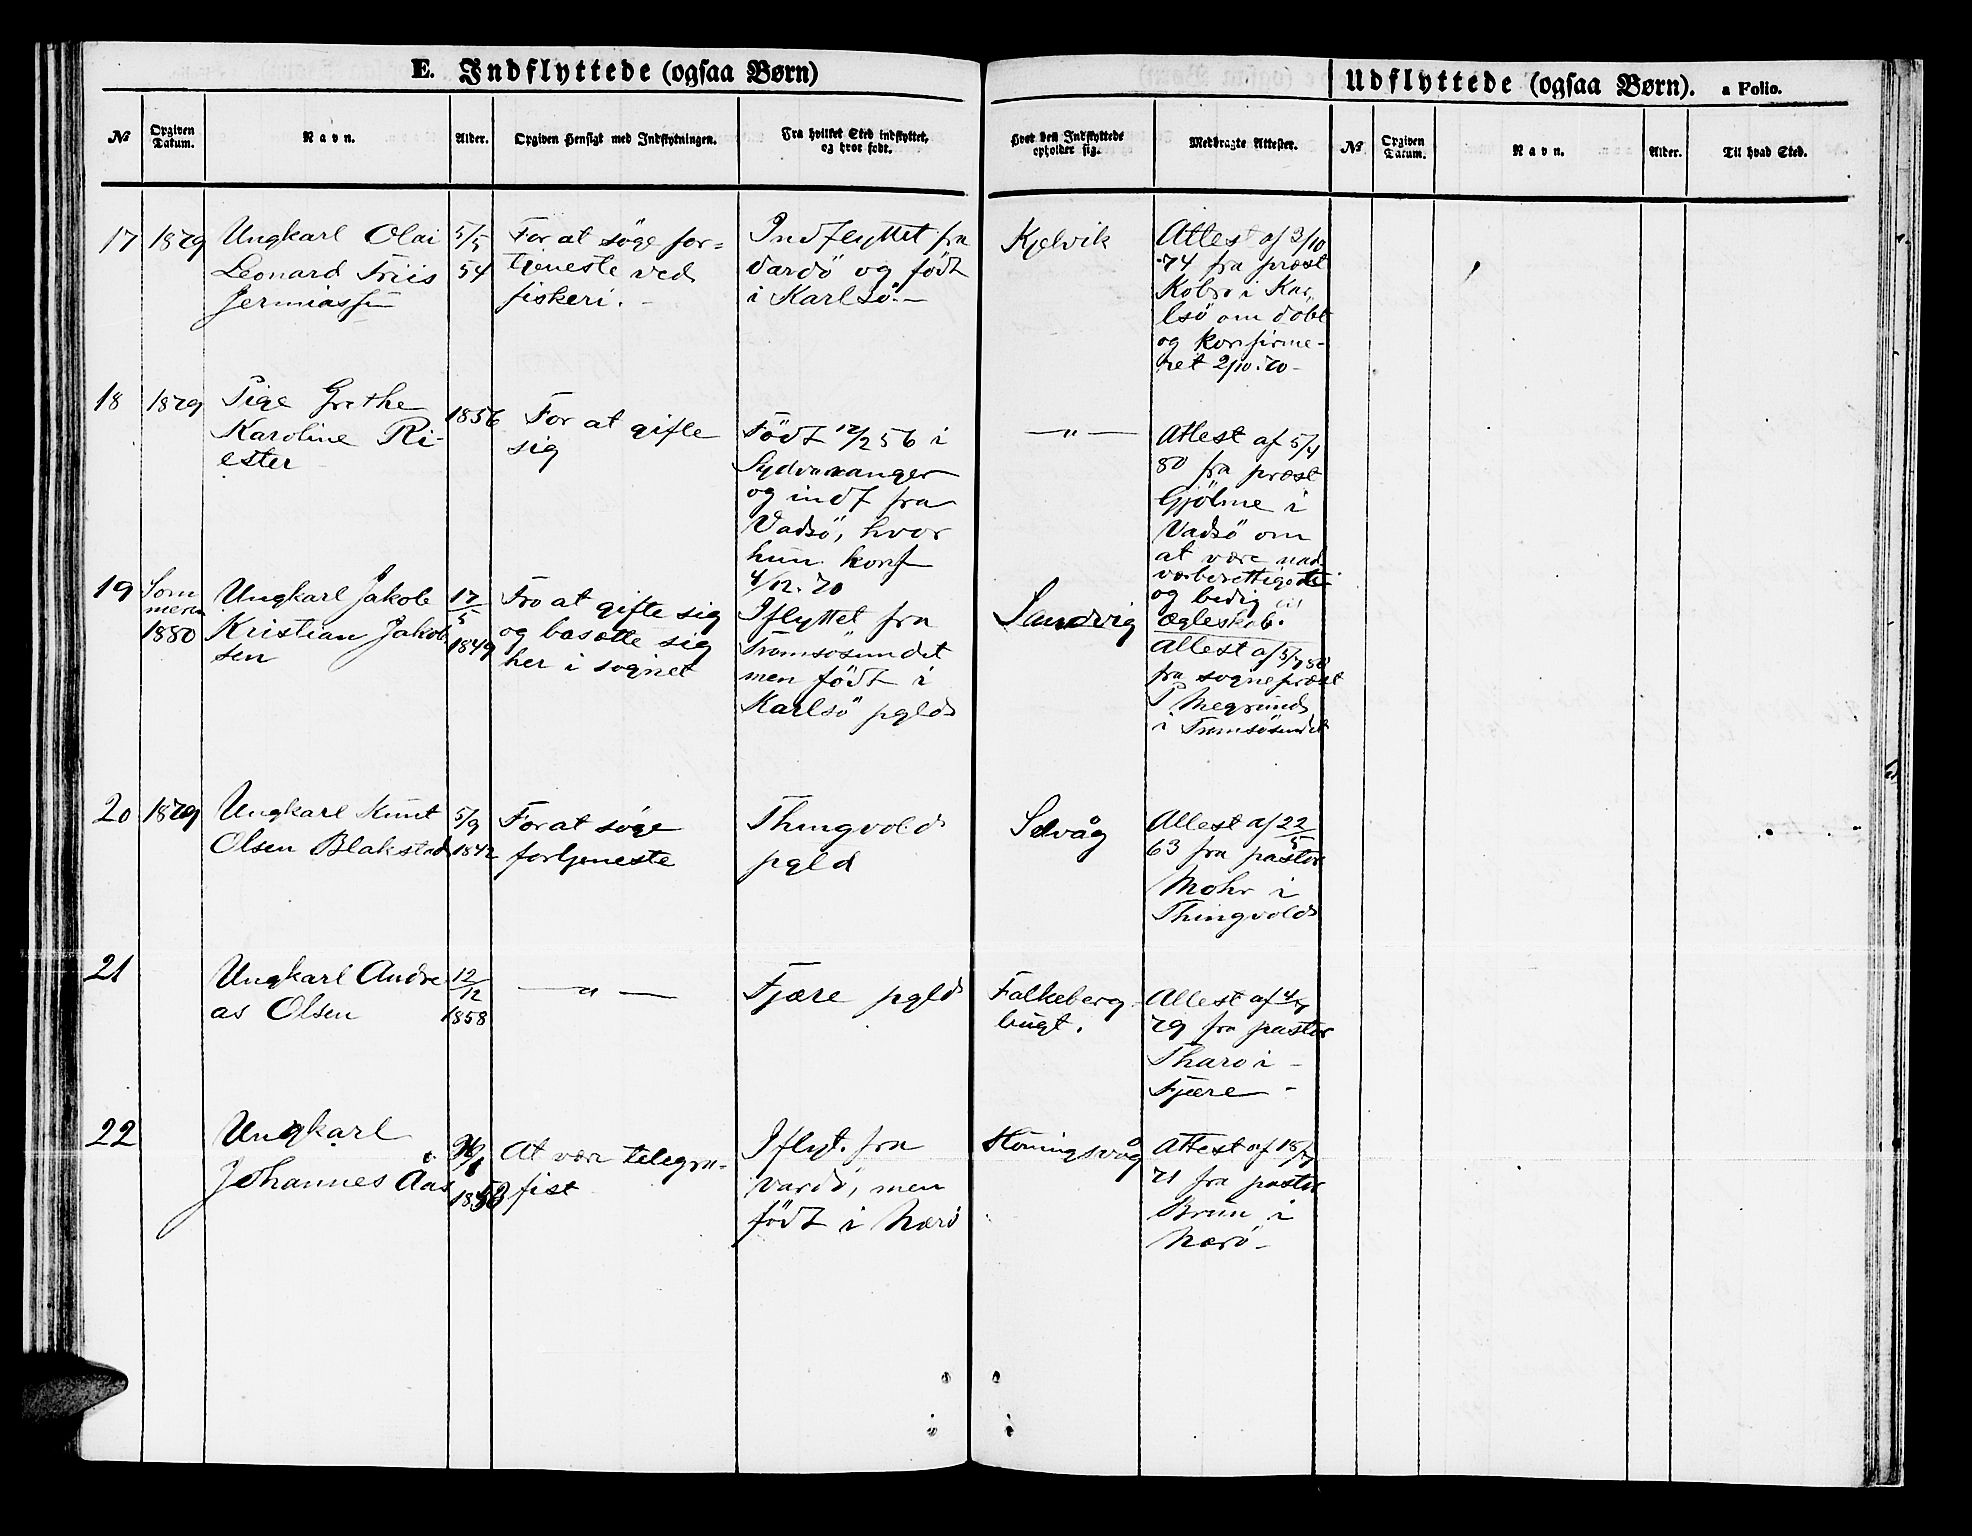 E. Indflyttede (ogsaa Børn)
Udflyttede (ogsaa Børn). a Folio.
No
Opgiven Datum.
Navn.
Alder.
Opgiven Hensigt med Indflytningen.
Fra hvilket Sted indflyttet, og hvor født.
Hvor den Indflyttede opholder sig.
Medbragte Attester.
No
Opgiven Datum.
Navn.
Alder.
Til hvad Sted.
17
1879
Ungkarl Olai
Leonard Friis
Jermiassen
5/5
54
For at söge for=
tjeneste ved
fiskeri. -
Indflyttet fra
Vardö og född
i Karlsö. -
Kjelvik
Attest af 3/10
74 fra præst
Kobro i Kar,,
lsö om döbt
og konfirme-
ret 2/10.70-
18
1879
Pige Grethe
Karoline Ri-
ester
1856
For at gifte
sig
Född 12/2 56 i
Sydvaranger
og indf fra
Vadsö, hvor
hun konf
4/12.70
— " —
Attest af 5/4
80 fra præst
Gjölme i
Vadsö om
at være nad
værberettigede
og ledig til
ægteskab.
19
Som
meren
1880
Ungkarl Jakob
Kristian Jakob
sen
17/5
1849
Fro at gifte sig
og bosætte sig
her i sognet
Iflyttet fra
Tromsösundet
men född i
Karlsö pgld
Sandvig
Attest af 5/7 80
fra sognepræst
i Tromsösundet
20
1879
Ungkarl Knut
Olsen Blakstad
5/9
1842
For at söge
fortjeneste
Thingvold
pgld
Selvåg
Attest af 22/5
63 fra pastor
Mohr i
Thingvold
21
Ungkarl Andre
as Olsen
12/12
1858
— " —
Fjære pgld
Falkeberg
bugt.
Attest af 4/7
79 fra pastor
Tharo i -
Fjære -
22
Ungkarl
Johannes Åas
At være telegra-
fist
Iflyt. fra
Vardö, men
född i Nærö
Honningsvåg
Attest af 18/7
71 fra pastor
Brun i
Nærö -